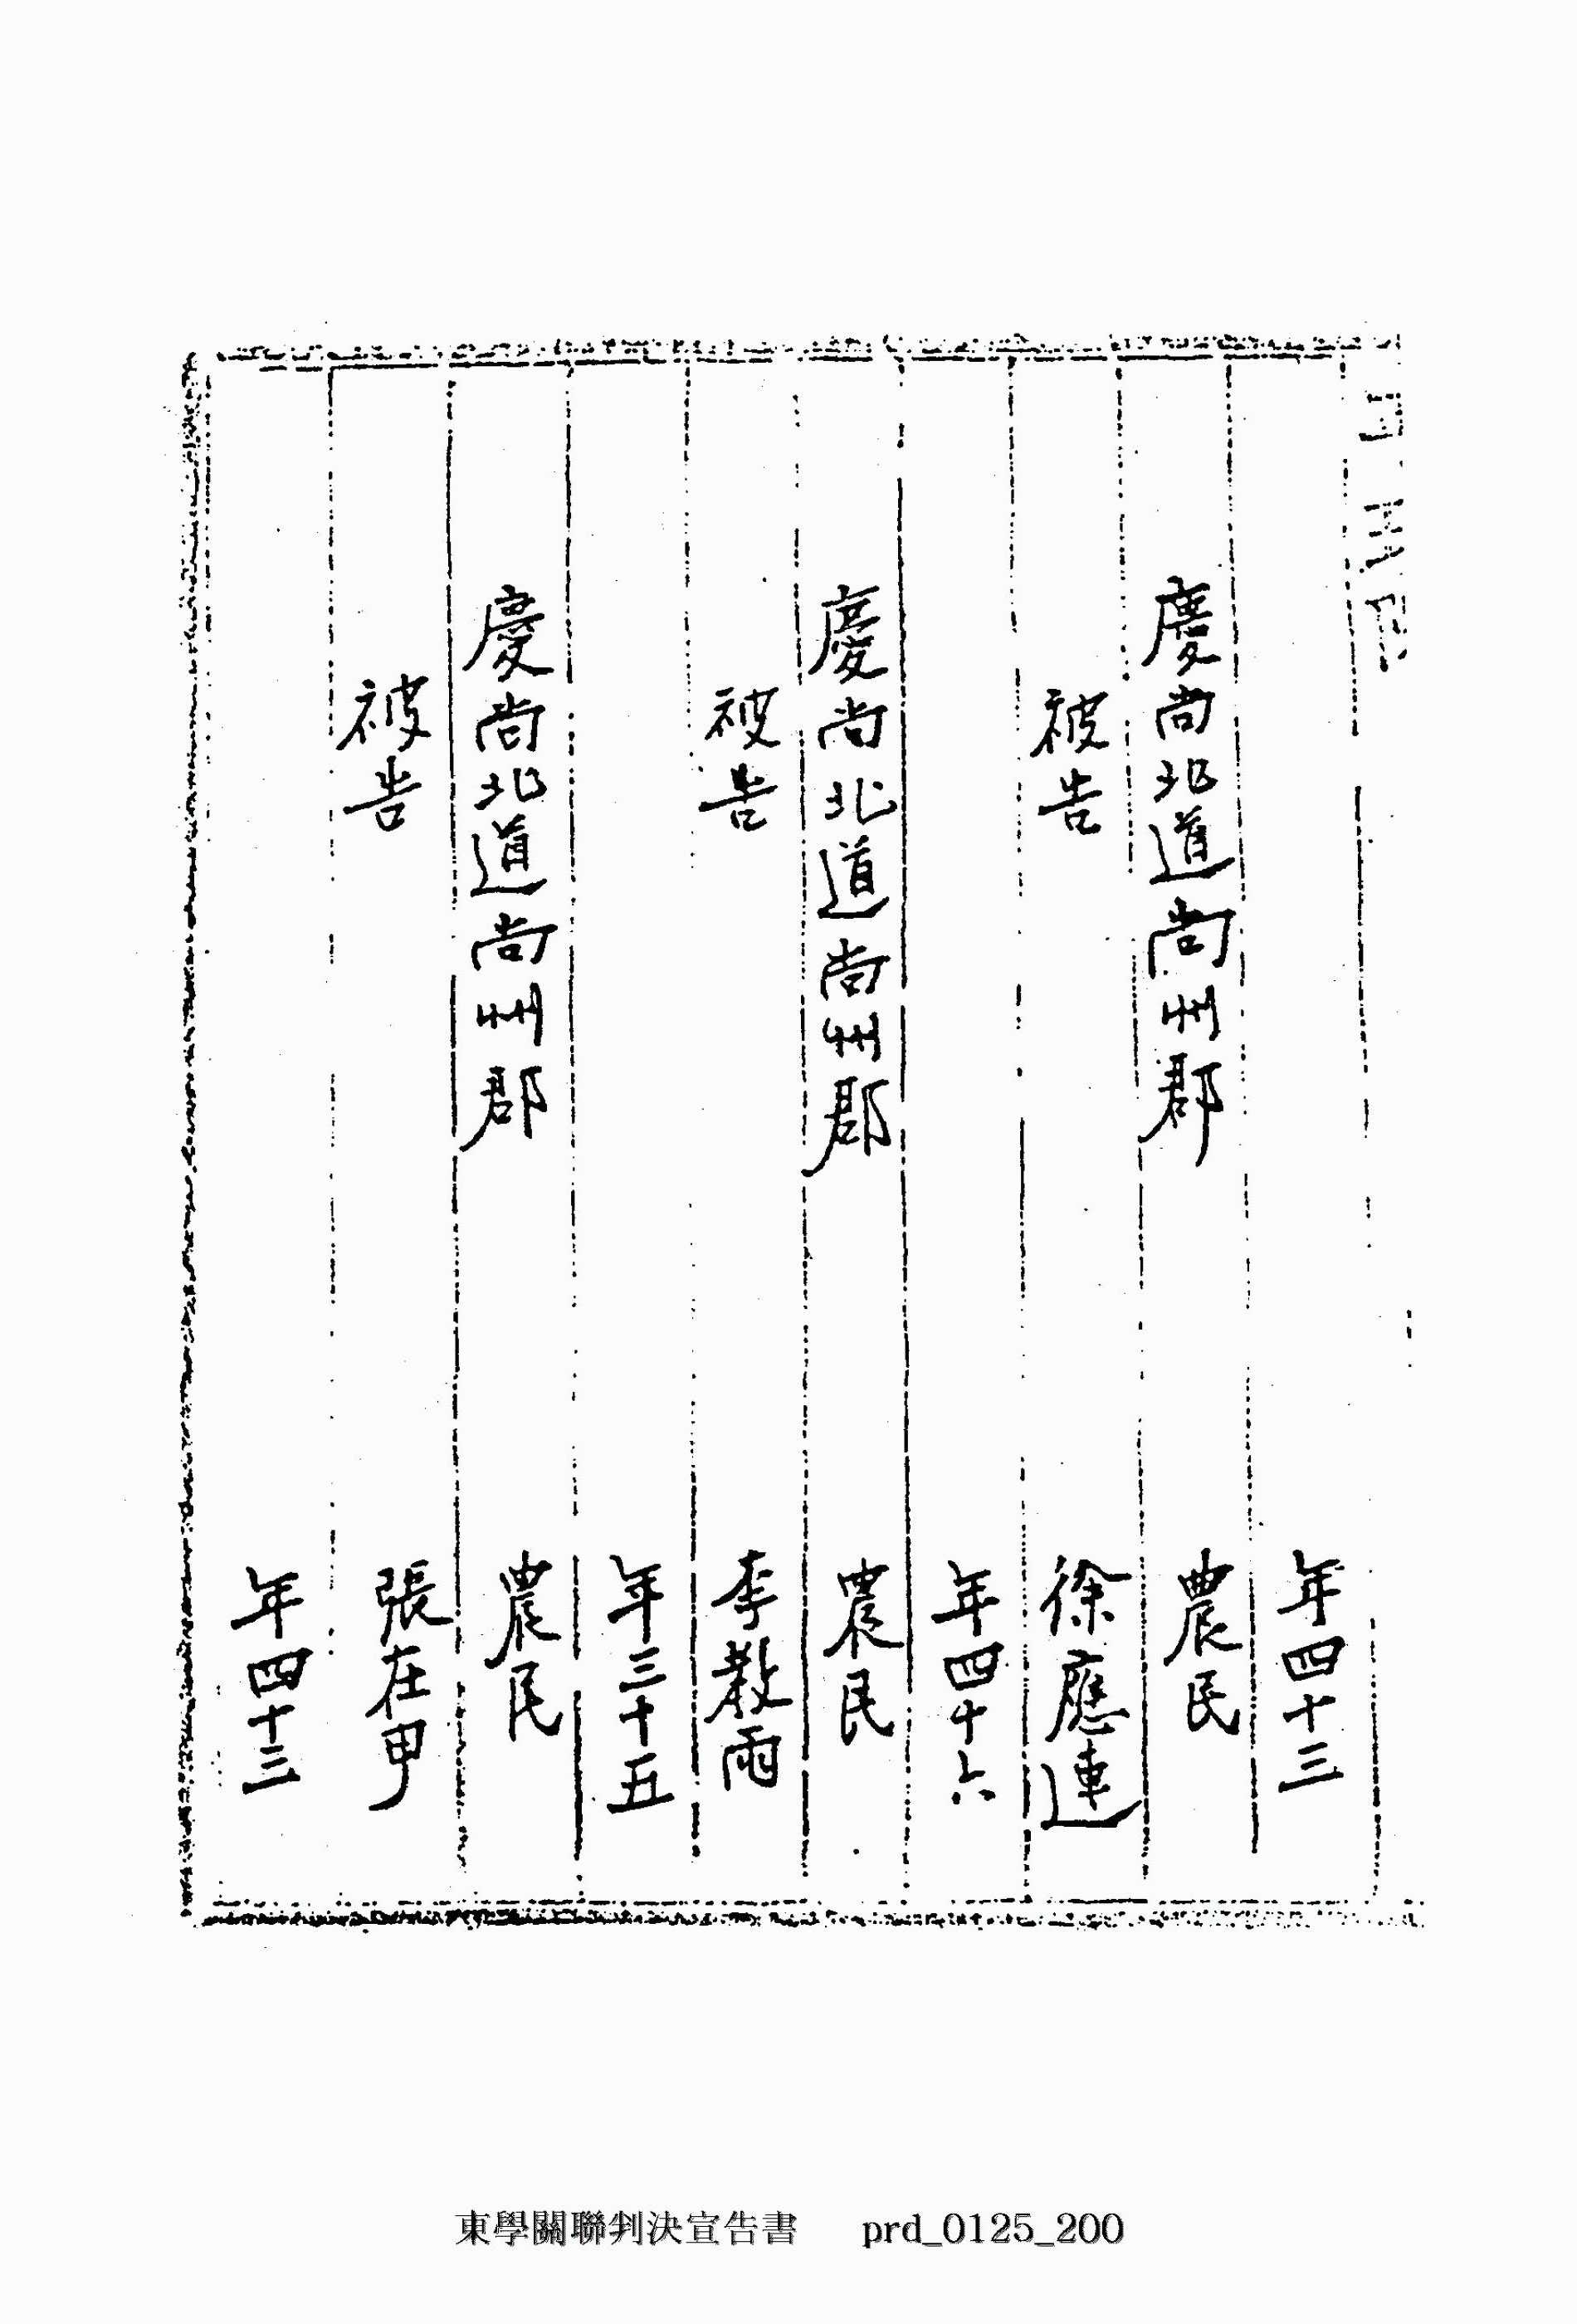 年四十三
慶尚北道尚州郡 農民
被告 徐應連
年四十六
慶尚北道尚州郡 農民
被告 李敎雨
年三十五
慶尚北道尚州郡 農民
被告 張在甲
年四十三
東學關聯判決宣告書 prd_0125_200